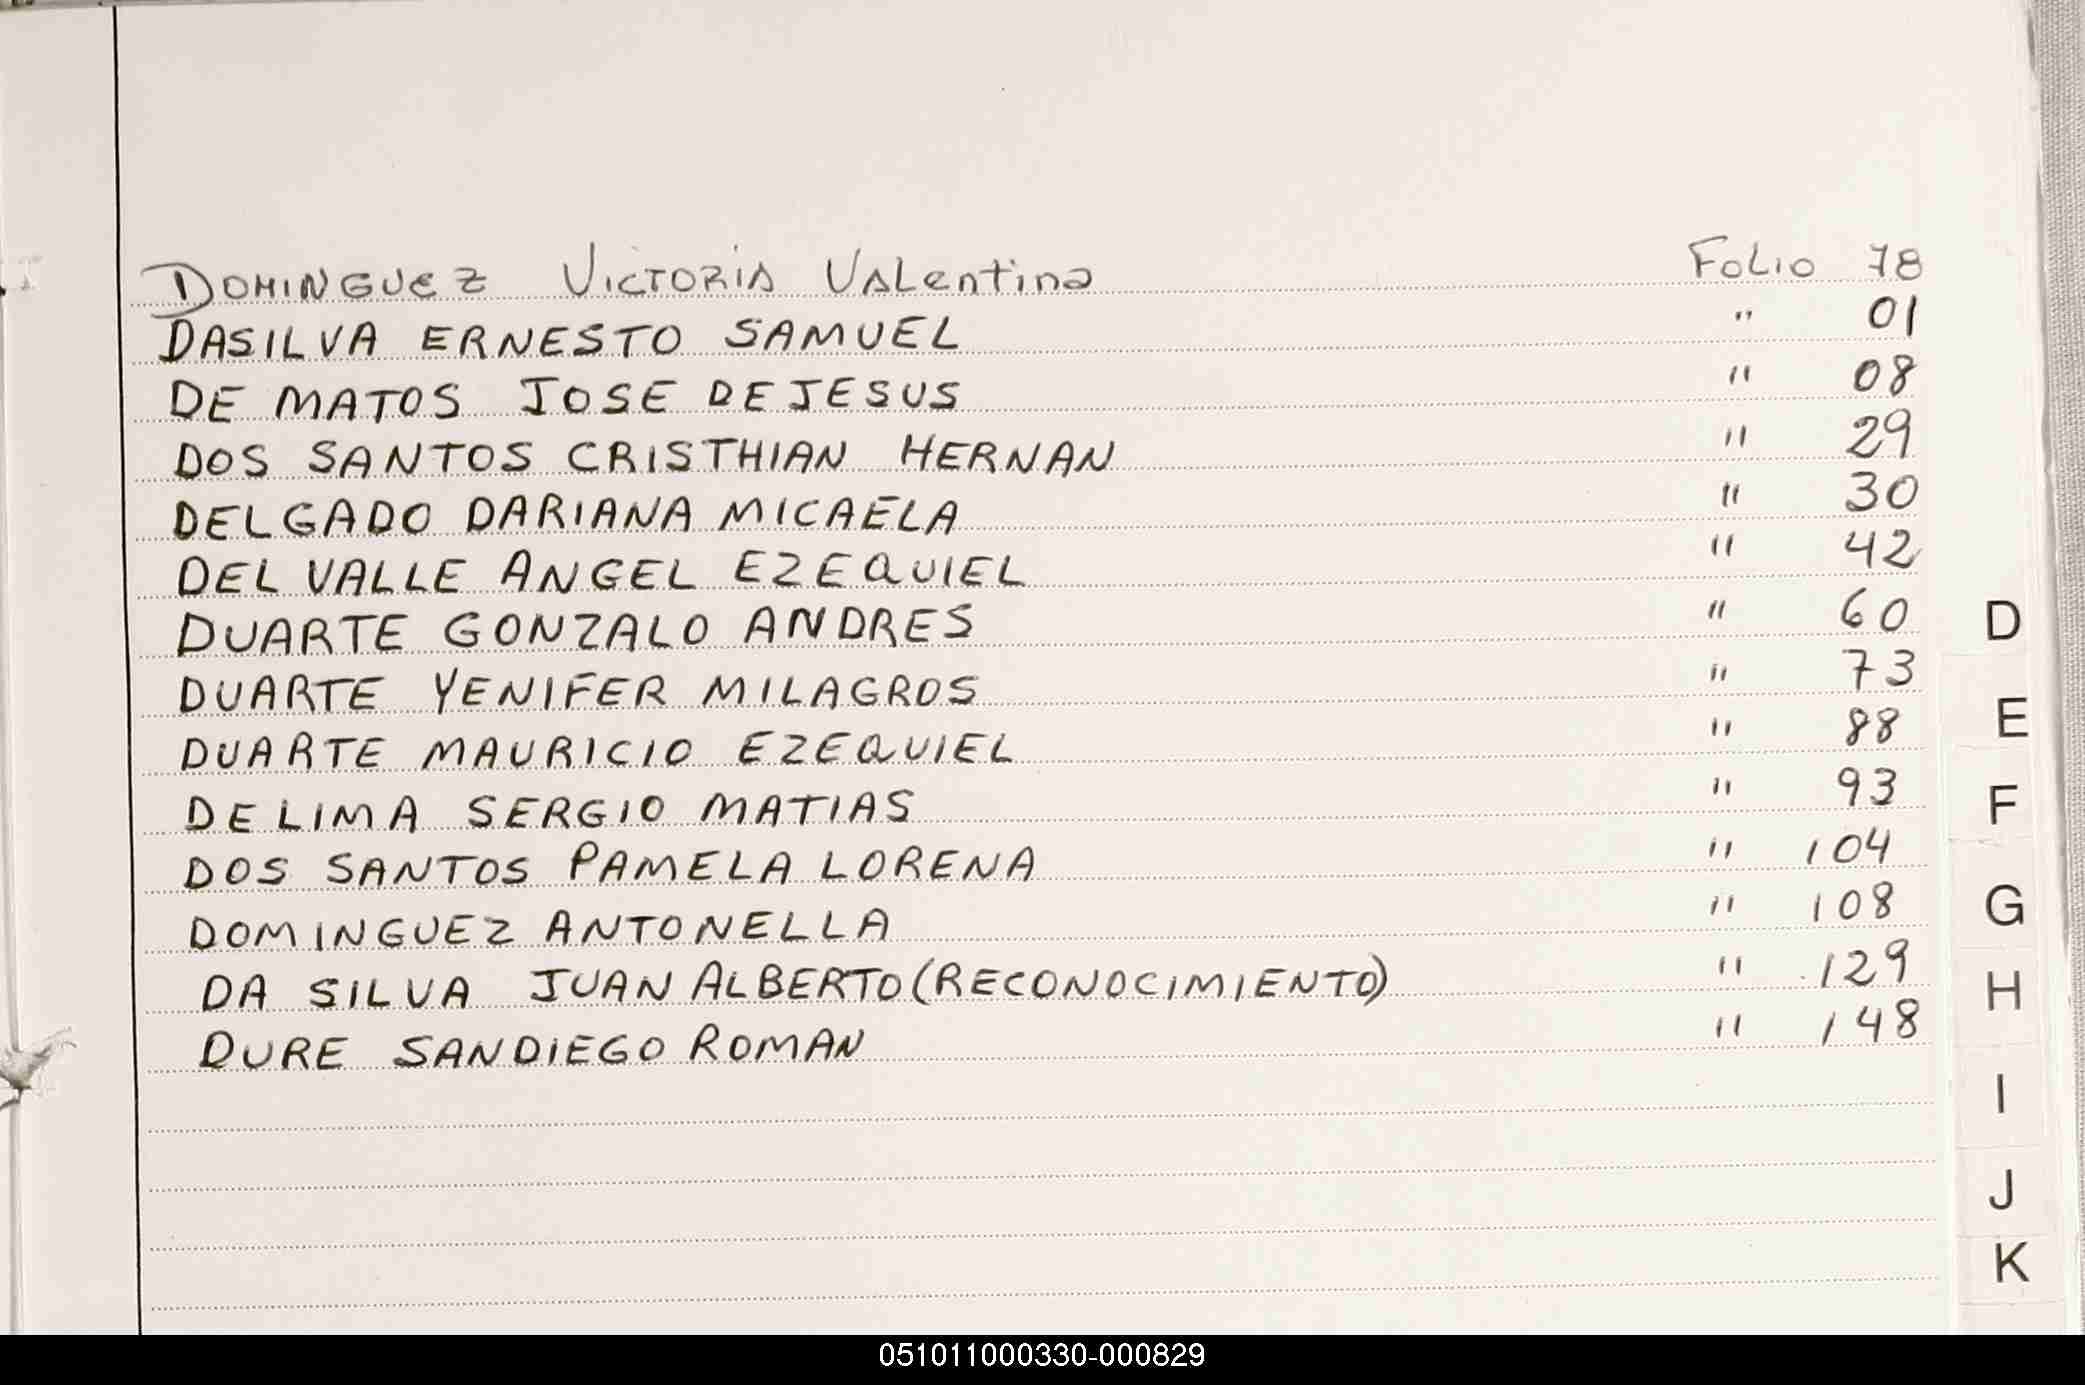 DOMINGUEZ VICTORIA VALentina Folio 78
DASILVA ERNESTO SAMUEL " 01
DE MATOS JOSE DE JESUS " 08
DOS SANTOS CRISTHIAN HERNAN " 29
DELGADO DARIANA MICAELA " 30
DEL VALLE ANGEL EZEQUIEL " 42
DUARTE GONZALO ANDRES " 60
DUARTE YENIFER MILAGROS " 73
DUARTE MAURICIO EZEQUIEL " 88
DE LIMA SERGIO MATIAS " 93
DOS SANTOS PAMELA LORENA " 104
DOMINGUEZ ANTONELLA " 108
DA SILVA JUAN ALBERTO (RECONOCIMIENTO) " 129
DURE SANDIEGO ROMAN " 148
D
E
F
G
H
I
J
K
051011000330-000829